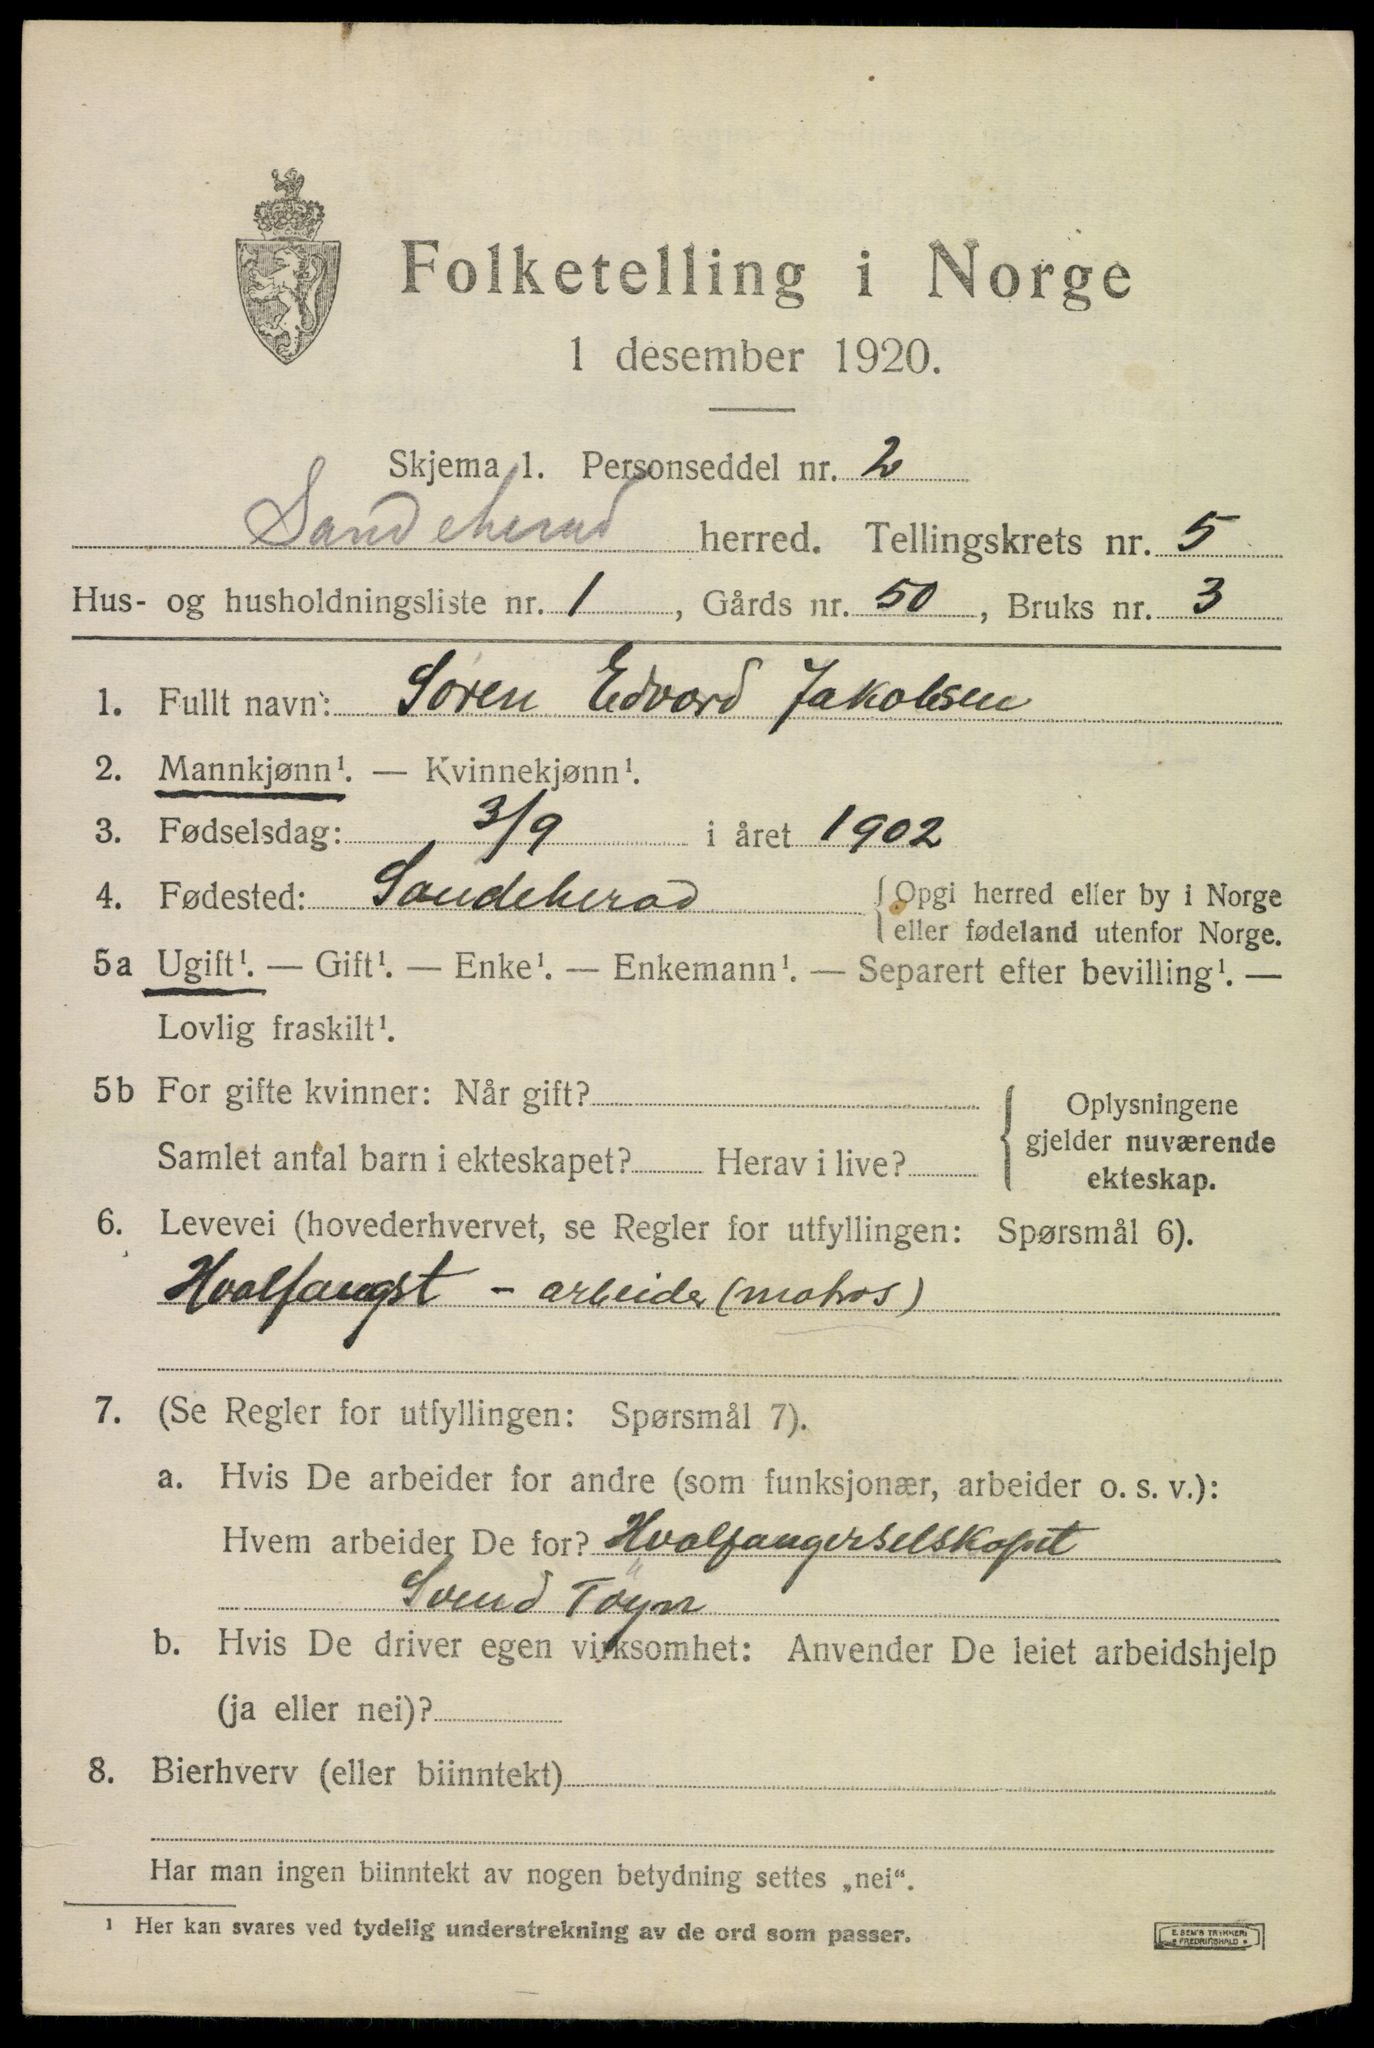 Folketelling i Norge
1 desember 1920.
Skjema 1. Personseddel nr. 2
Sandeherad herred. Tellingskrets nr. 5
Hus- og husholdningsliste nr. 1, Gårds nr. 50, Bruks nr. 3
1. Fullt navn: Søren Edvard Jakobsen
2. Mannkjønn¹. — Kvinnekjønn¹.
3. Fødselsdag: 3/9 i året 1902
4. Fødested: Sandeherad {Opgi herred eller by i Norge
eller fødeland utenfor Norge.
5a Ugift¹. — Gift¹. — Enke¹. — Enkemann¹. — Separert efter bevilling¹. —
Lovlig fraskilt¹.
5b For gifte kvinner: Når gift?
Samlet antal barn i ekteskapet? Herav i live?
{ Oplysningene
gjelder nuværende
ekteskap.
6. Levevei (hovederhvervet, se Regler for utfyllingen: Spørsmål 6).
Hvalfangst - arbeider (matros)
7. (Se Regler for utfyllingen: Spørsmål 7).
a. Hvis De arbeider for andre (som funksjonær, arbeider o. s. v.):
Hvem arbeider De for? Hvalfangerselskapet
Svend Föyn
b. Hvis De driver egen virksomhet: Anvender De leiet arbeidshjelp
(ja eller nei)?
8. Bierhverv (eller biinntekt)
Har man ingen biinntekt av nogen betydning settes „nei“.
¹ Her kan svares ved tydelig understrekning av de ord som passer.
E. SEM'S TRYKKERI
FREDRIKSHALD